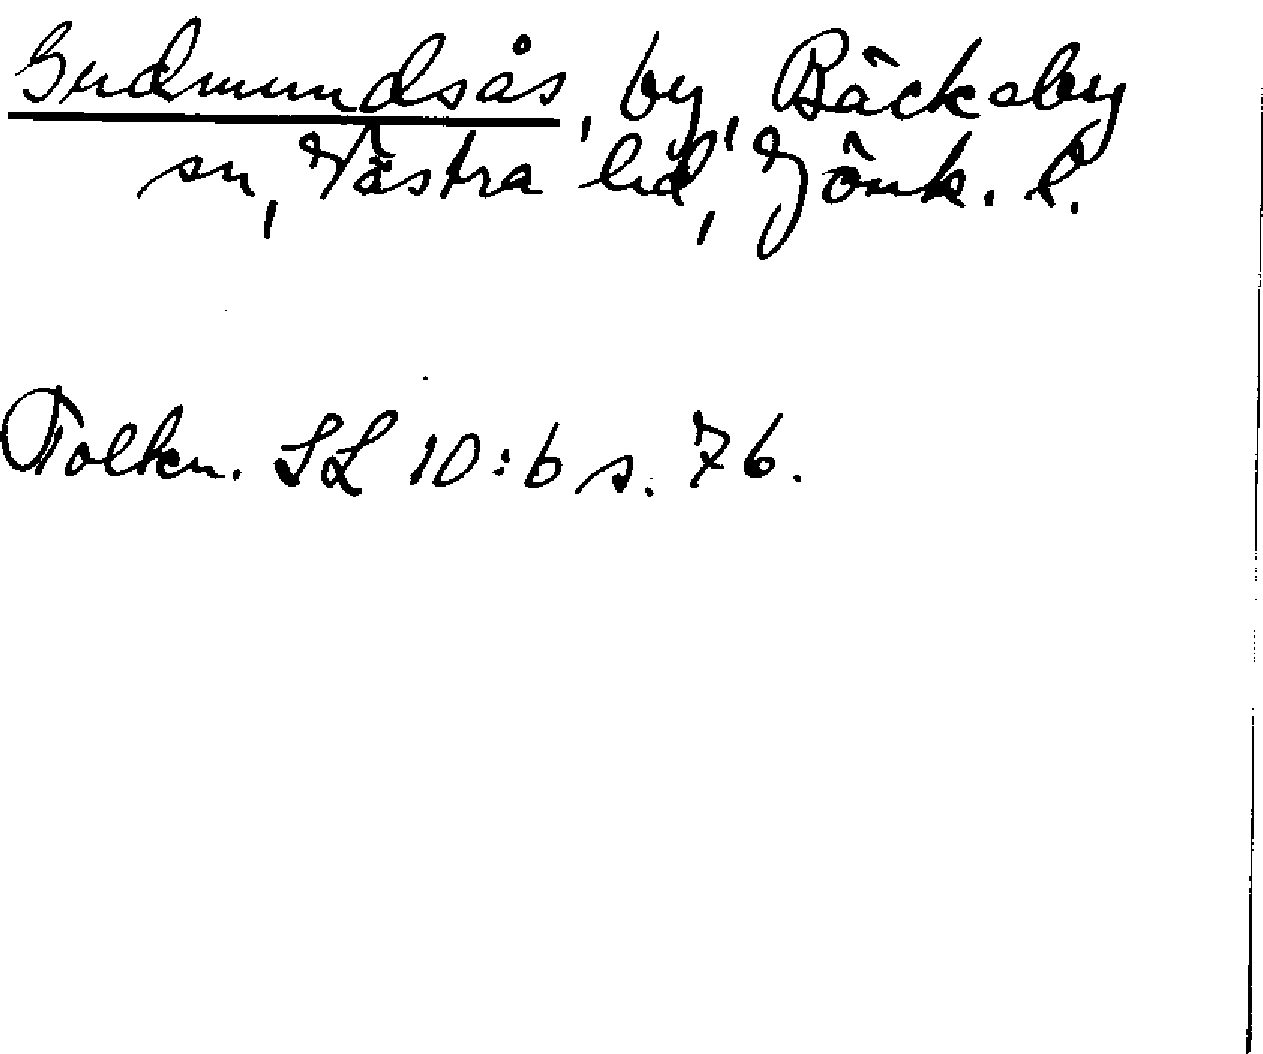 Gudmundsås, by, Bäckaby
sn, Västra hd, Jönk. l.
Folkn. SL 10:6 s. 76.